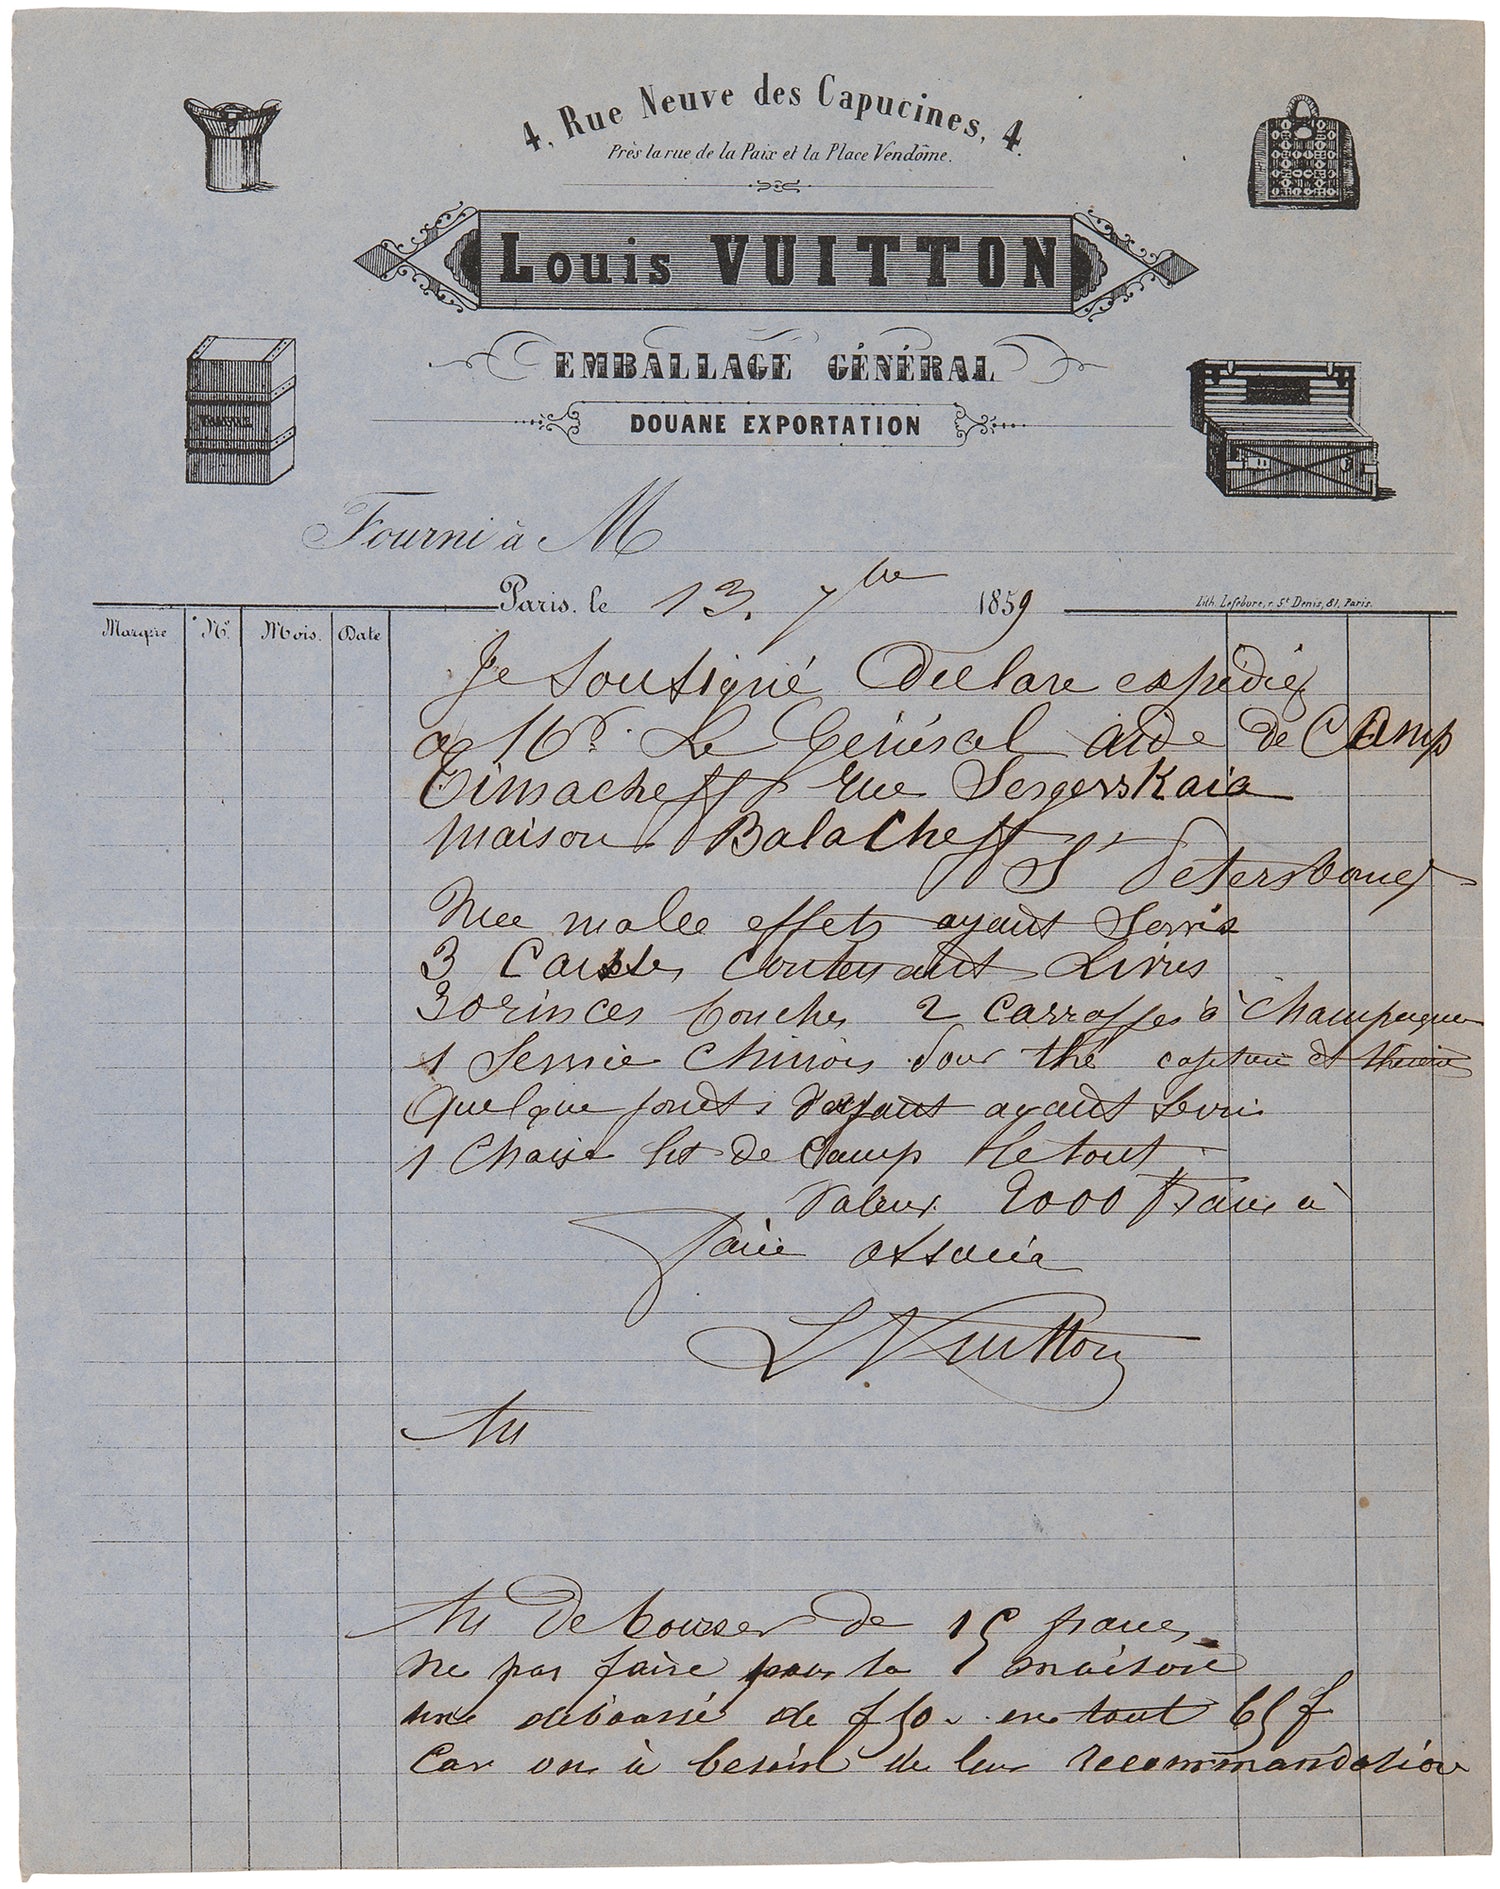 4, Rue Neuve des Capucines, 4.
Près la rue de la Paix et la Place Vendôme.
Louis VUITTON
EMBALLAGE GÉNÉRAL
DOUANE EXPORTATION
Fourni à M
Paris, le 13. 7bre 1859
Lith. Lefebure, r. St Denis, 81, Paris.
Marque N° Mois. Date
Je Soussigné Declare expédiez
a Mr. Le Général aide de Camp
Timacheff rue Sergerskaia
maison Balacheff
St Petersbourg
Une malle effets ayant Servis
3 Caisses contenant Livres
30 rinces bouches 2 Carraffes à Champagne
1 Servie Chinois Pour thé et theière
Quelque ayant Servi
1 Chaise lit de Camp le tout
Valeur 2000 Francs a
Faire assurée
L Vuitton
Au
de 15 francs
ne pas faire pour la maison
une deboursé de f 50. en tout 65 f
Car on à besoin de leur recommandation